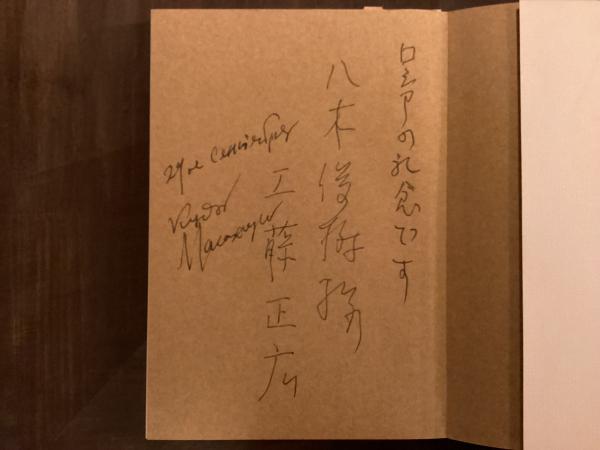 ロシアの記念です
八木俊樹様
工藤正広
29ое сентября
Кудо
Масахиро